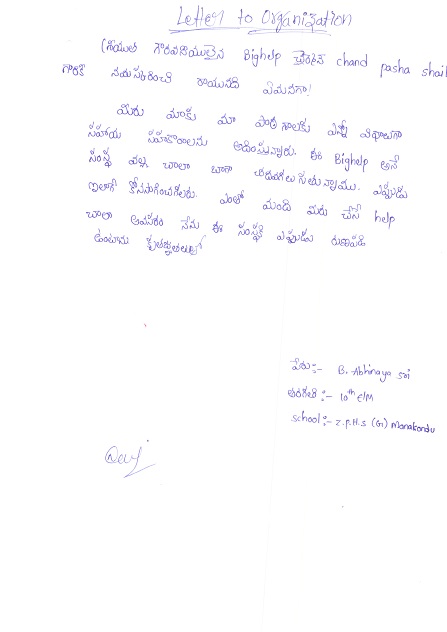 Letter to Organization
(శ్రీయుత గౌరవనీయులైన Bighelp చైర్మన్ chand pasha shaik
గారికి నమస్కరించి రాయునది ఏమనగా!
మీరు మాకు మా పాఠశాలకు ఎన్నో విధాలుగా
సహాయ సహకారాలను అందిస్తున్నారు. ఈ Bighelp అనే
సంస్థ వల్ల చాలా బాగా చదవగలుగుతున్నాము. ఎప్పుడు
ఇలాగే కొనసాగించగలరు. ఎంతో మంది మీరు చేసే help
చాలా అవసరం నేను ఈ సంస్థకి ఎప్పుడు రుణపడి
ఉంటాను కృతజ్ఞతలుతో
పేరు:- B. Abhinaya Sri
తరగతి:- 10th E/M
school:- Z.P.H.S (G) Manakondu